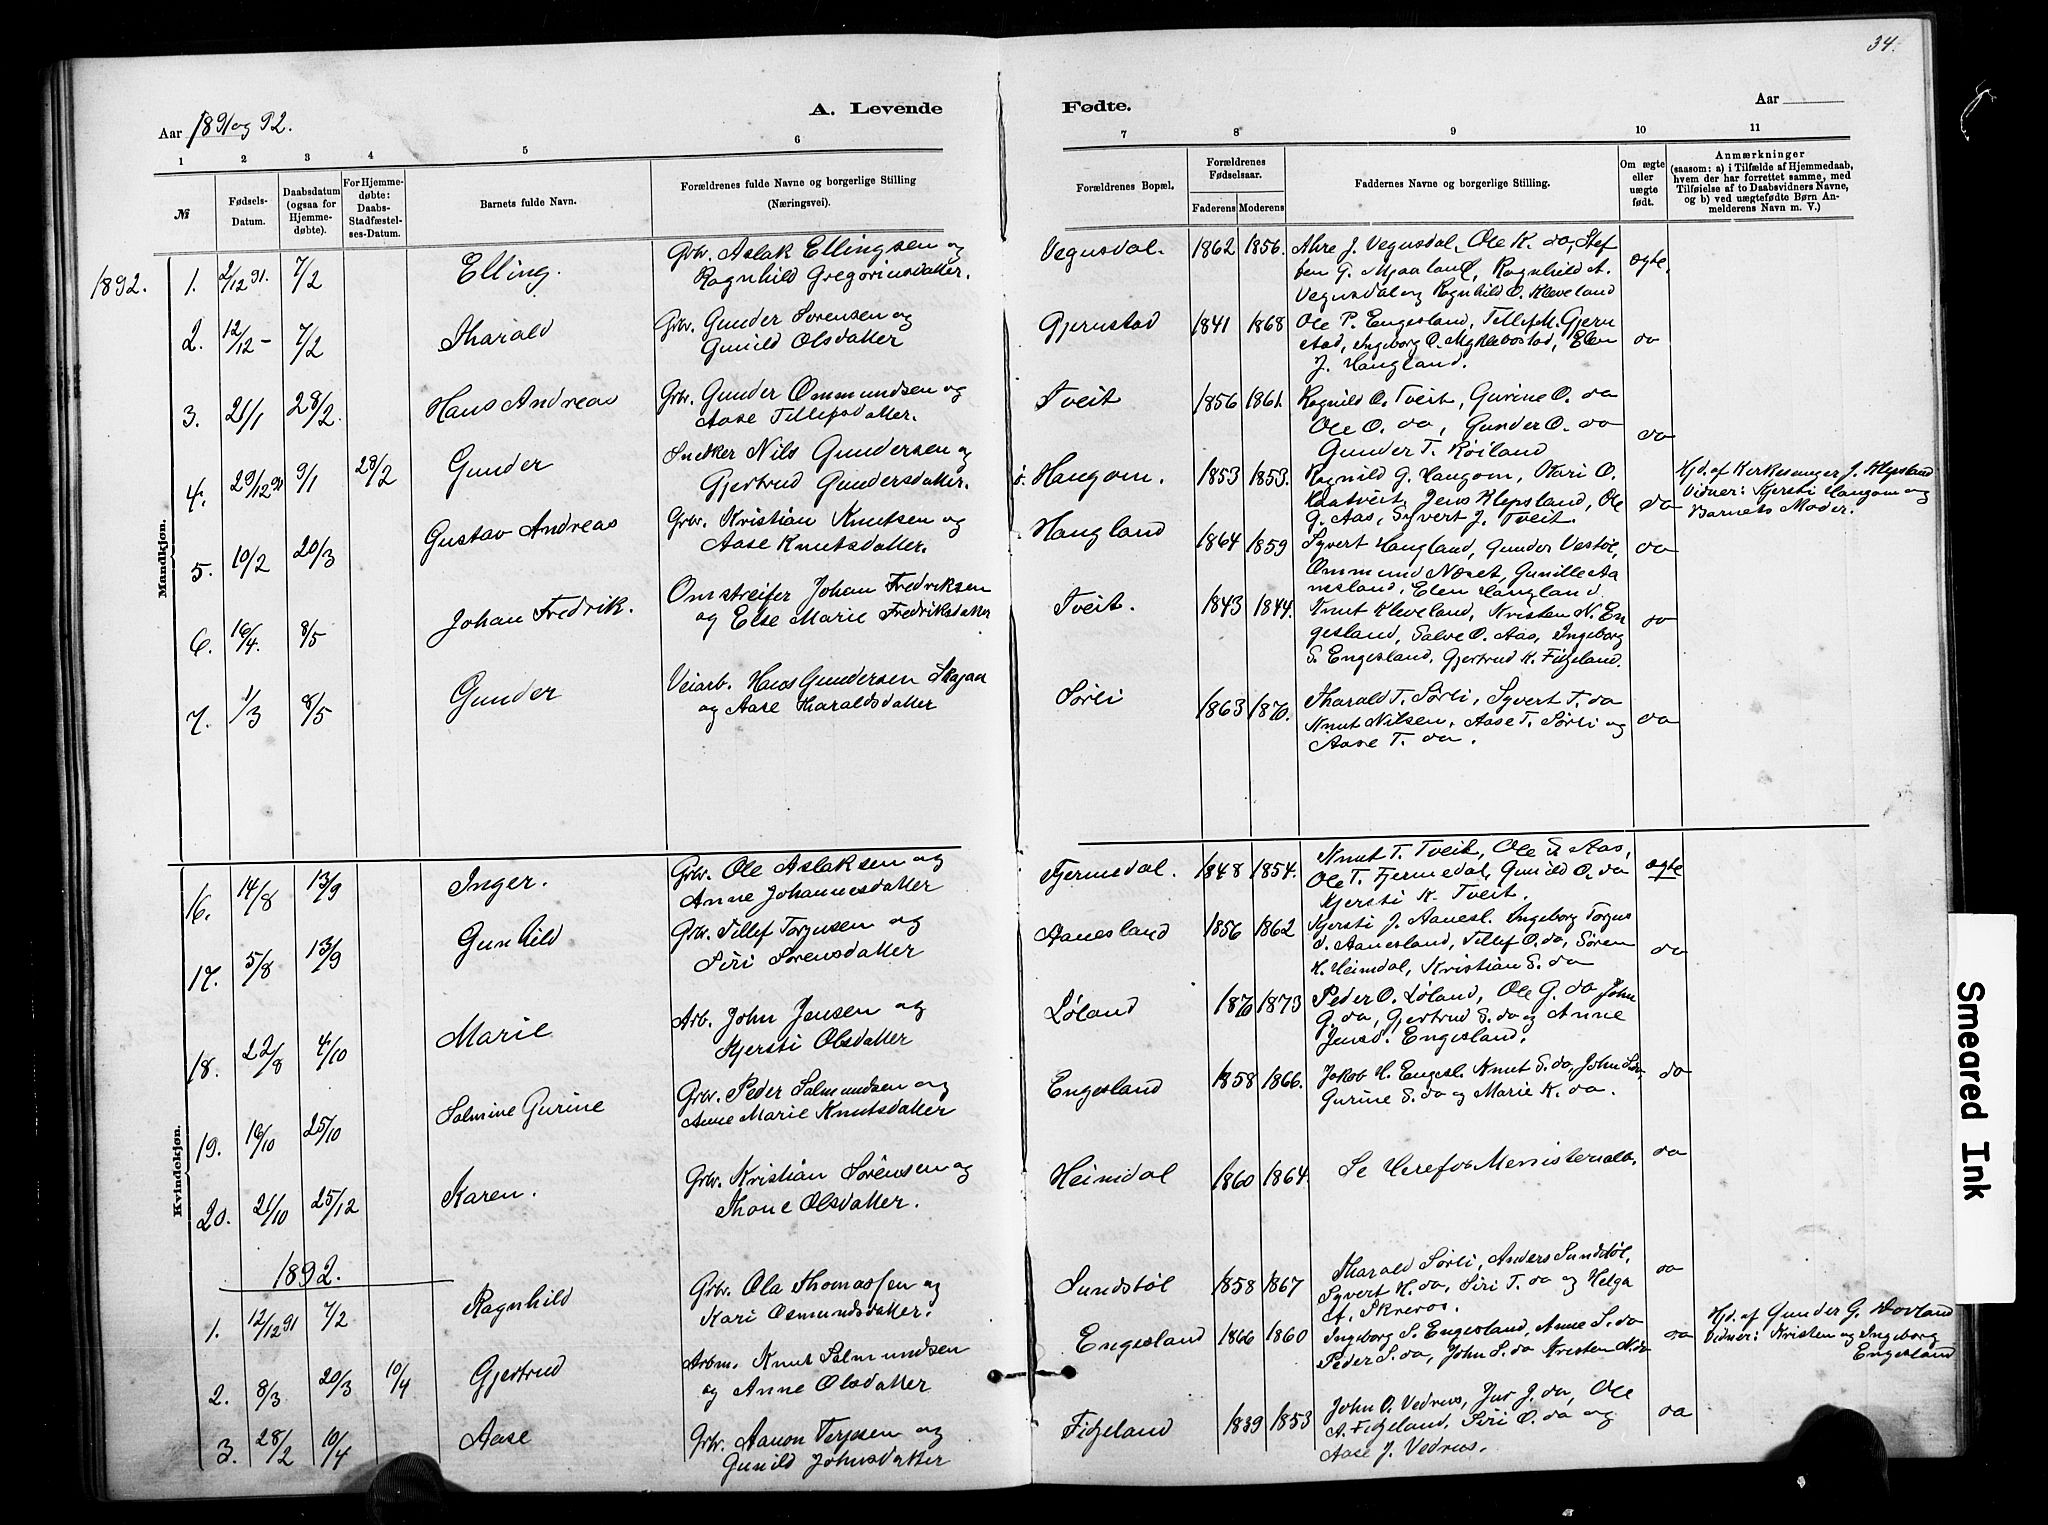 34.
Aar 1891 og 92.
A. Levende
Fødte.
Aar
1 2 3 4 5 6 7 8 9 10 11
№
Fødsels-Datum.
Daabsdatum (ogsaa for Hjemme-døbte).
For Hjemme-døbte: Daabs-Stadfæstel-ses-Datum.
Barnets fulde Navn.
Forældrenes fulde Navne og borgerlige Stilling (Næringsvei).
Forældrenes Bopæl.
Forældrenes Fødselsaar.
Faderens Moderens
Faddernes Navne og borgerlige Stilling.
Om ægte eller uægte født.
Anmærkninger
(saasom: a) i Tilfælde af Hjemmedaab,
hvem der har forrettet samme, med
Tilføielse af to Daabsvidners Navne,
og b) ved uægtefødte Børn An-
melderens Navn m. V.)
Mandkjøn.
1892. 1. 2/12 91. 7/2 Elling. Grbr. Aslak Ellingsen og
Ragnhild Gregoriusdatter.
Vegusdal. 1862 1856. Ahre J. Vegusdal, Ole K. do, Stef
fen G. Mjaaland, Ragnhild A.
Vegusdal og Ragnhild O. Kleveland
ægte.
2. 12/12 - 7/2 Tharald Grbr. Gunder Sørensen og
Gunild Olsdatter
Gjerustad 1841 1868 Ole P. Engesland, Tellef M. Gjeru
stad, Ingeborg O. Myklebostad, Elen
J. Haugland.
do
3. 21/1 28/2. Hans Andreas Grbr. Gunder Ommundsen og
Aase Tellefsdatter.
Tveit 1856 1861. Ragnild O. Tveit, Gurine O. do
Ole O. do, Gunder O. do
Gunder T. Røiland
do
4. 29/12 91 9/1 28/2 Gunder Snedker Nils Gundersen og
Gjertrud Gundersdatter.
Haugom. 1853 1853. Ragnild G. Haugom, Kari O.
Kaatveit, Jens Klepsland, Ole
G. Aas, Syvert J. Tveit.
do
Hjd. af Kirkesanger J. Klepsland
Vidner: Kjersti Haugom og
Barnets Moder.
5. 10/2 20/3 Gustav Andreas Grbr. Kristian Knutsen og
Aase Knutsdatter.
Haugland 1864 1859 Syvert Haugland, Gunder Vestøl,
Ommund Næset, Gunille Aa
nesland, Elen Haugland.
do
6. 16/4. 8/5 Johan Fredrik. Omstreifer Johan Fredriksen
og Else Marie Fredriksdatter
Tveit. 1843 1844. Knut Kleveland, Kristen N. En
gesland, Salve O. Aas, Ingeborg
S. Engesland, Gjertrud K. Fidjeland.
do
7. 1/3 8/5 Gunder Veiarb. Hans Gundersen Skajaa
og Aase Haraldsdatter
Sørli 1863 1870. Tharald T. Sørli, Syvert T. do
Knut Nilsen, Aase T. Sørli og
Aase T. do.
do
Kvindekjøn.
16. 14/8 13/9 Inger. Grbr. Ole Aslaksen og
Anne Johannesdatter
Fjermedal. 1848 1854. Knut T. Tveit, Ole S. Aas,
Ole T. Fjermedal, Gunild O. do
Kjersti K. Tveit.
ægte
17. 5/8 13/9 Gunhild Grbr. Tellef Torjusen og
Siri Sørensdatter
Aanesland 1856 1862 Kjersti J. Aanesl. Ingeborg Torjus
d. Aanesland, Tellef O. do, Søren
K. Heimdal, Kristian S. do
do
18. 22/8 4/10 Marie Arb. John Jensen og
Kjersti Olsdatter
Løland 1870 1873 Peder O. Løland, Ole G. do John
G. do, Gjertrud S. do og Anne
Jensd. Engesland.
19. 16/10 25/10 Salmine Gurine Grbr. Peder Salmundsen og
Anne Marie Knutsdatter
Engesland 1858 1866. Jakob H. Engesl. Knut S. do, John S. do,
Gurine S. do og Marie K. do.
do
20. 21/10 25/12 Karen. Grbr. Kristian Sørensen og
Thone Olsdatter.
Heimdal 1860 1864. Se Herefos Ministerialb.
do
1892.
1. 12/12 91 7/2 Ragnhild Grbr. Ola Thomassen og
Kari Osmundsdatter.
Sundstøl 1858 1867 Tharald Sørli, Anders Sundstøl,
Syvert H. do, Siri T. do og Helga
A. Skreros.
do
2. 8/3 20/3 10/4 Gjertrud Arbm. Knut Salmundsen
og Anne Olsdatter
Engesland 1866 1860 Ingeborg S. Engesland, Anne S. do
Peder S. do, John S. do Kristen N. do
do
Hjd. af Gunder G. Dovland
Vidner: Kristen og Ingeborg
Engesland
3. 28/2 10/4 Aase Grbr. Aanon Terjesen og
Gunild Johnsdatter
Fidjeland 1839 1853 John O. Vedrus, Jur J. do, Ole
A. Fidjeland, Siri O. do og
Aase J. Vedrus.
do
Smeared Ink